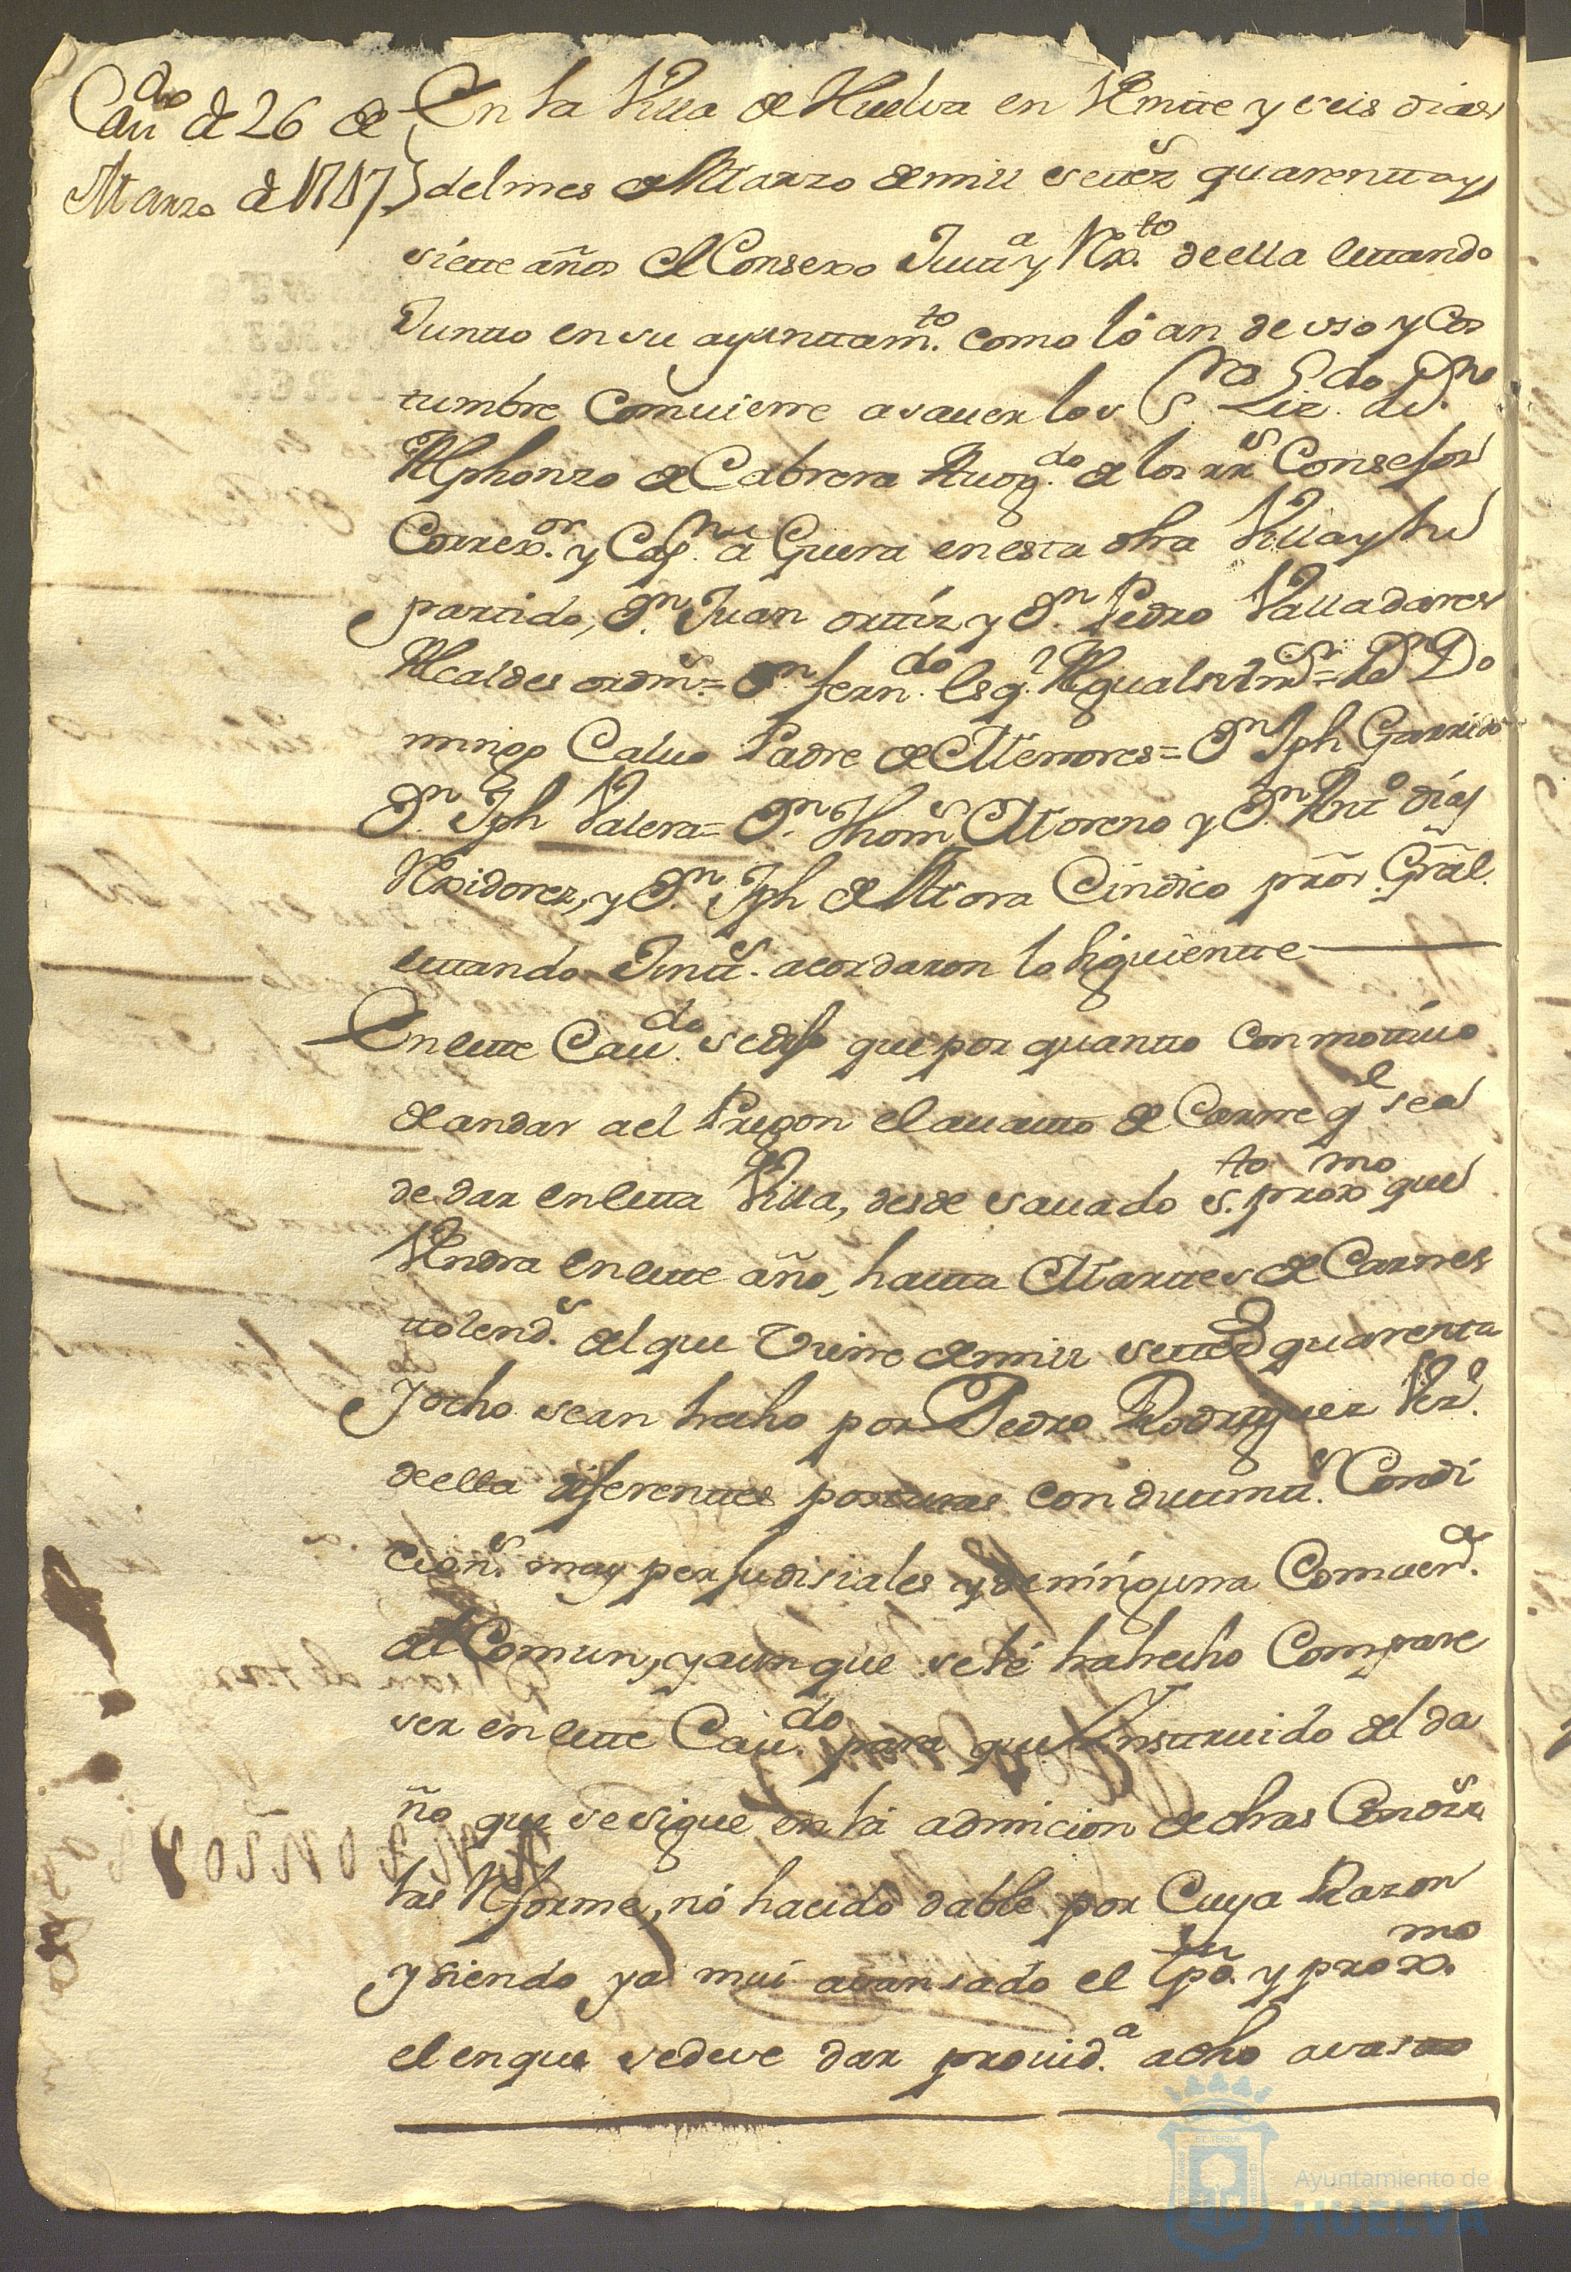 Cau.do de 26 de
Marzo de 1747
En la Villa de Huelva en Veintte y seis dias
del mes de Marzo de mill settes quarentta y
siette años el Consexo Justt.a y Rx.to de ella esttando
Juntto en su ayunttam.to como lo an de uso y cos
tumbre combiene a sauer los S.res Liz.do D.n
Alphonzo de Cabrera Auog.do de los rr.s Consejos
Correx.or y Cap.n a Guerra en esta dha Villa y su
partido, D.n Juan orttiz y D.n Pedro Valladares
Alcaldes ordin.s = D.n Fern.do Esq.l Alguasil = D.n Do
mingo Caluo Padre de Menores = D.n Jph Garrido
D.n Jph Valera = D.n Thom.s Moreno y D.n Antt.o días
Rexidores, y D.n Jph de Mora Cindico prõr Grãl.
esttando Juntt.s acordaron lo siguientte
En estte Cau.do se dijo que por quantto con mottiuo
de andar a el Pregon el auastto de Carne q.e se a
de dar en estta Villa, desde sauado s.to prox.mo que
Vendra en estte año, hastta Marttes de Carnes
ttolend.s del que Viene de mill settes quarenta
y ocho se an hecho por Pedro Rodriguez Vez.o
de ella diferenttes posturas con disttintt.s Condi
cion.s muy perjudisiales y de ninguna Comuen.a
al Comun, y aunque se le ha hecho Compare
ser en estte Cau.do para que Insttruido del da
ño que se sigue en la admicion de dhas Condi.s
las Reforme, no ha sido dable por Cuya Razon
y siendo ya mui auansado el tpo. y prox.mo
el en que se deue dar prouid.a a dho auastto
Ayuntamiento de
HUELVA